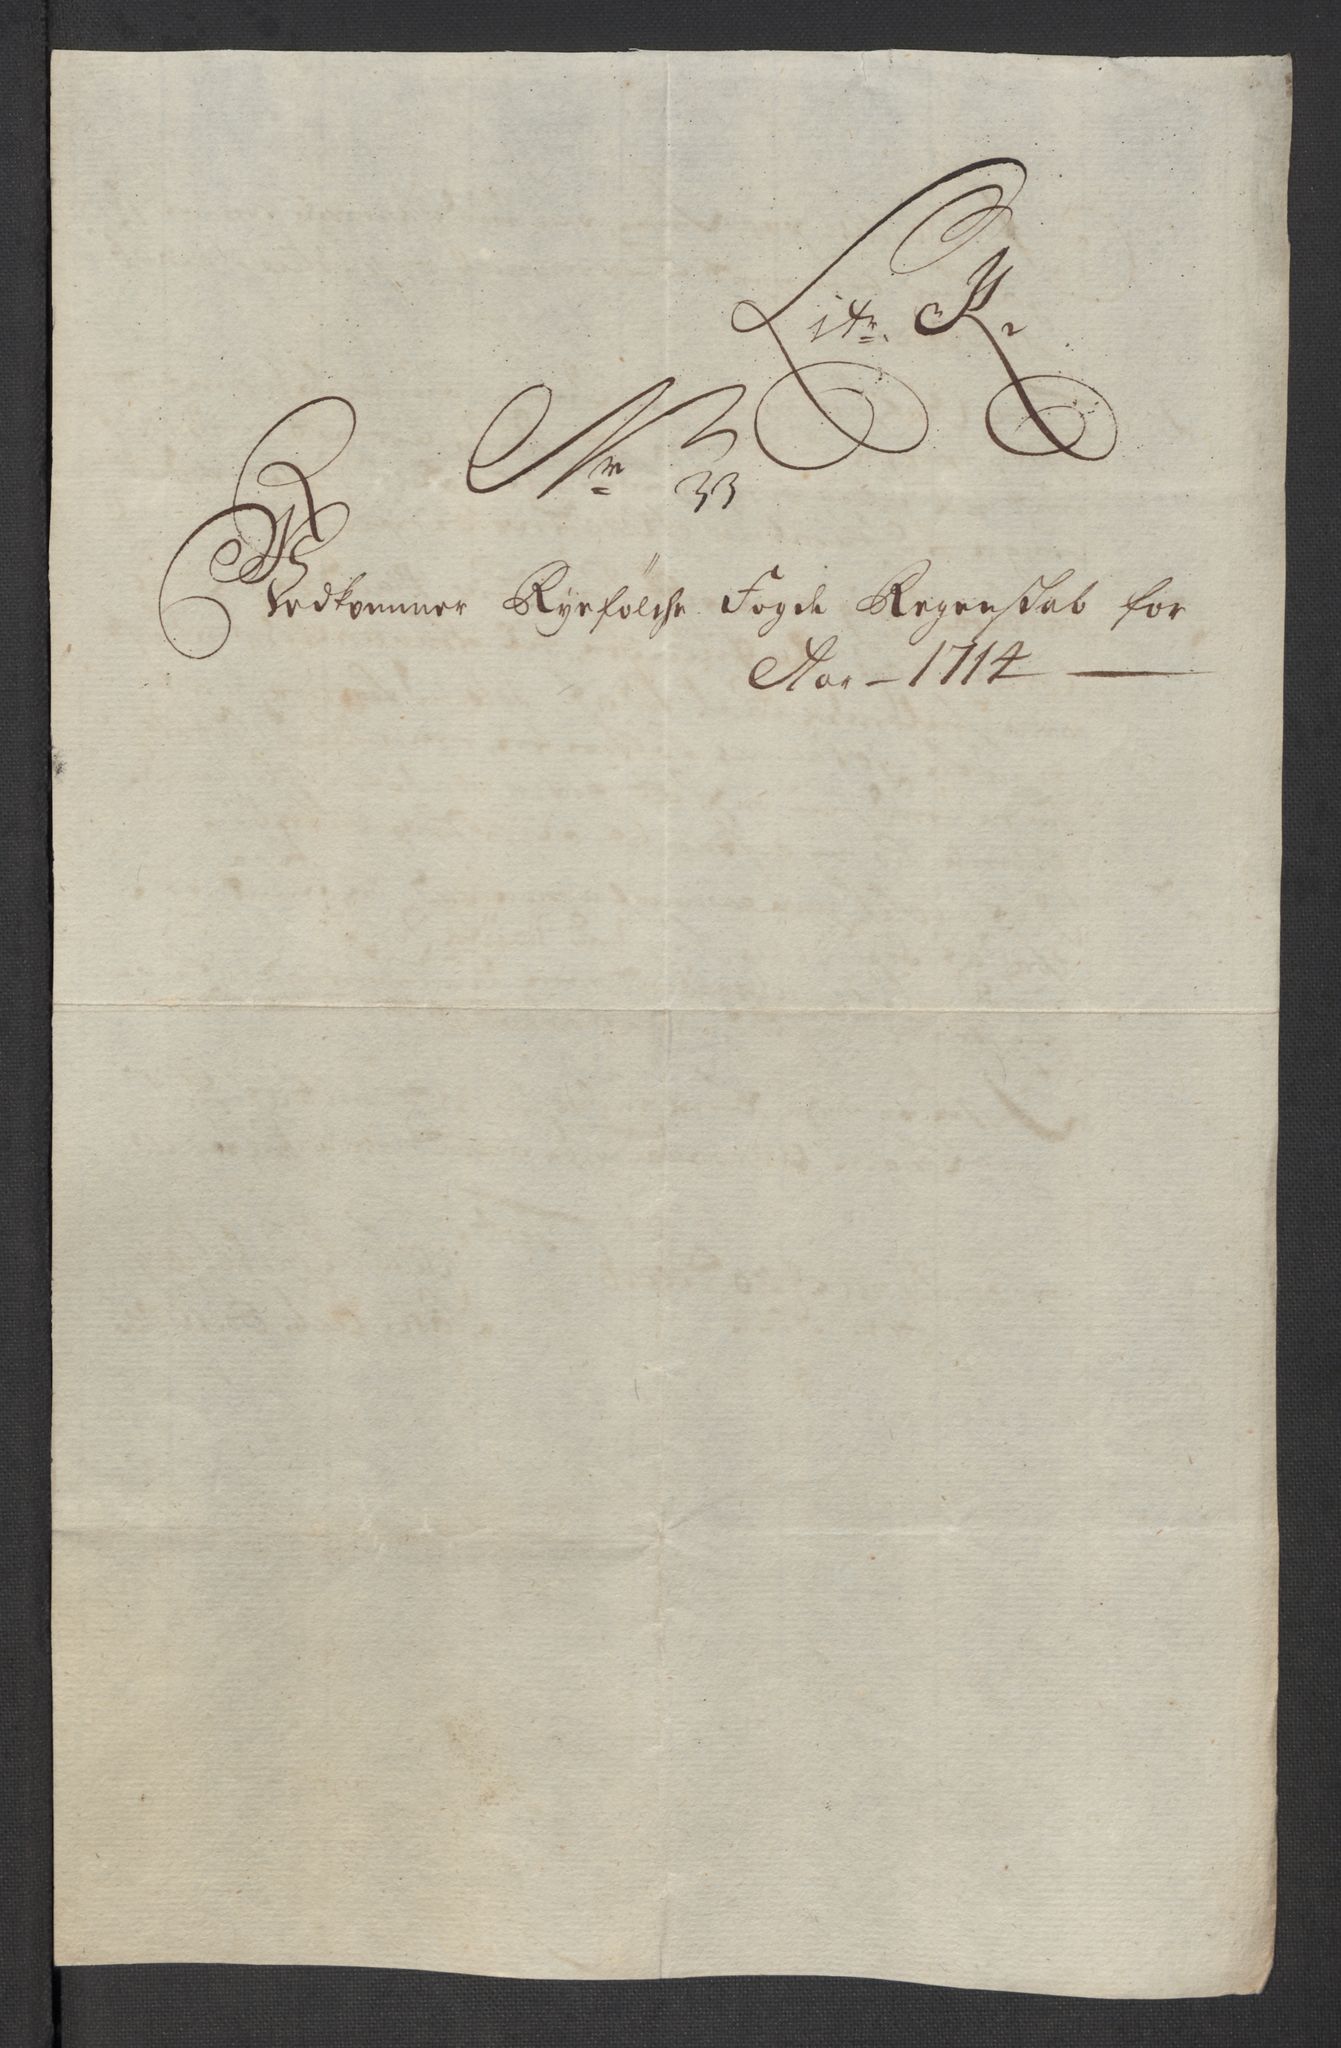 Litr. K.
Nr 33
Vedkommer Ryefölche Fogde Regenskab for
Aar - 1714